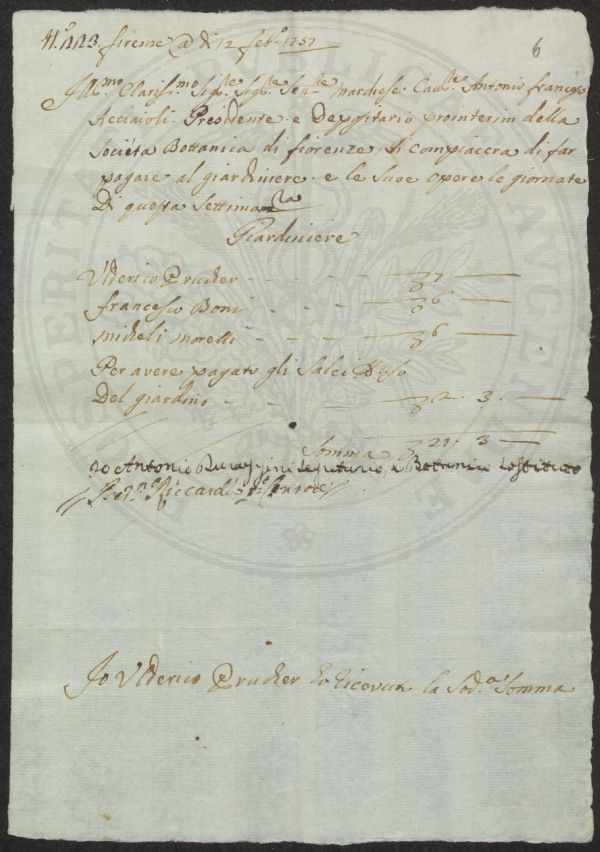 N.º 223. firenze @ di 12 feb.º 1757
6
Ill.mo Clariss.mo Sig.re Sig.re Sen.re Marchese Cav.re Antonio Franc.º
Acciaioli Presidente e Depositario prointerim della
Società Bottanica di fiorenze Si compiaccia di far
pagare al giardiniere e le suoe opere le giornate
Di questa Settimana
Giardiniere
Ulderico Prucher - - - - 7
francesco Boni - - - 6
micheli morelli - - - 6
Per avere pagato gli Salci uso
Del giardino - - - 2. 3.
Somma 21. 3
Io Antonio Segretario Botanico
Riccardi
Io Ulderico Prucher ho ricevuto la Sod.a Somma